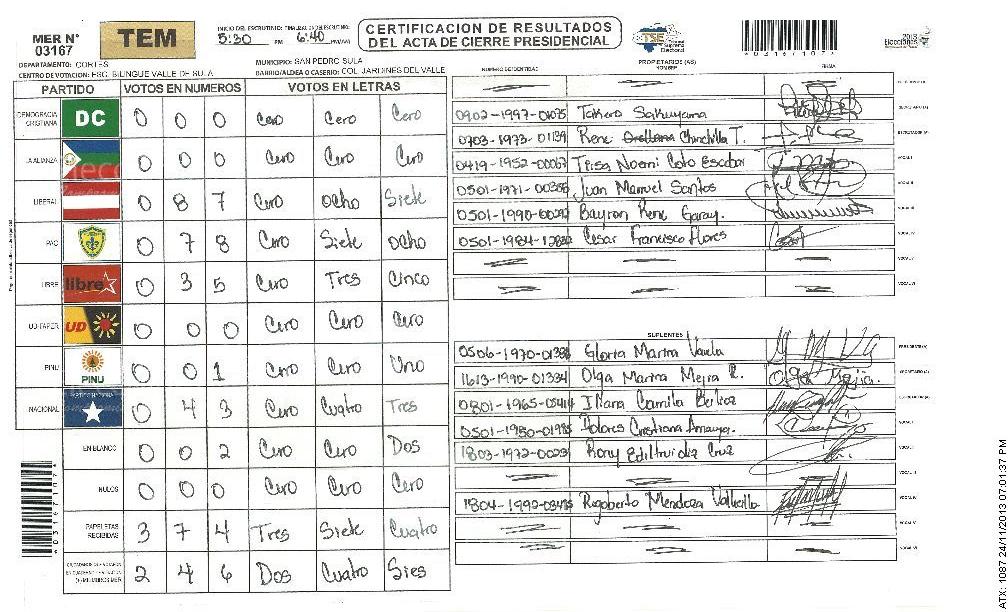 MER N° 03167
TEM
INICIO DEL ESCRUTINIO: 5:30 PM
6:40 PM
CERTIFICACION DE RESULTADOS
DEL ACTA DE CIERRE PRESIDENCIAL
TSE
2013
Elecciones
DEPARTAMENTO: CORTES
MUNICIPIO: SAN PEDRO SULA
CENTRO DE VOTACION: ESC. BILINGUE VALLE DE SULA
BARRIO/ALDEA O CASERIO: COL. JARDINES DEL VALLE
PARTIDO VOTOS EN NUMEROS VOTOS EN LETRAS
DEMOCRACIA CRISTIANA DC 0 0 0 Cero Cero Cero
LA ALIANZA 0 0 0 Cero Cero Cero
LIBERAL 0 8 7 Cero Ocho Siete
PAC 0 7 8 Cero Siete Ocho
LIBRE libre 0 3 5 Cero Tres Cinco
UD-FAPER UD 0 0 0 Cero Cero Cero
PINU PINU 0 0 1 Cero Cero Uno
NACIONAL 0 4 3 Cero Cuatro Tres
EN BLANCO 0 0 2 Cero Cero Dos
NULOS 0 0 0 Cero Cero Cero
PAPELETAS RECIBIDAS 3 7 4 Tres Siete Cuatro
2 4 6 Dos Cuatro Sies
NUMERO DE IDENTIDAD PROPIETARIOS (AS) NOMBRE FIRMA
0902-1997-01035 Sakuyama
0703-1973-01139 Rene Orellana Chinchilla T.
0419-1952-00067 Noemi Coto Escobar
0501-1971-00356 Juan Manuel Santos
Bayron Rene Garay.
Cesar Francisco Flores
SUPLENTES
Gloria Marina Varela
1613-1990-01334 Olga Marina Mejia R.
0801-1965-05414 Camila
Dolores Cristina Amaya.
Rony Cruz
Rigoberto Mendoza Vallecillo
60316710724
ATX: 1087 24/11/2013 07:01:37 PM